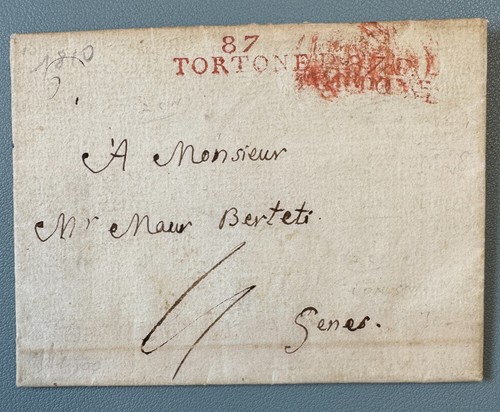 1810
87
TORTONE
À Monsieur
Mr Maur Berteti.
Genes.